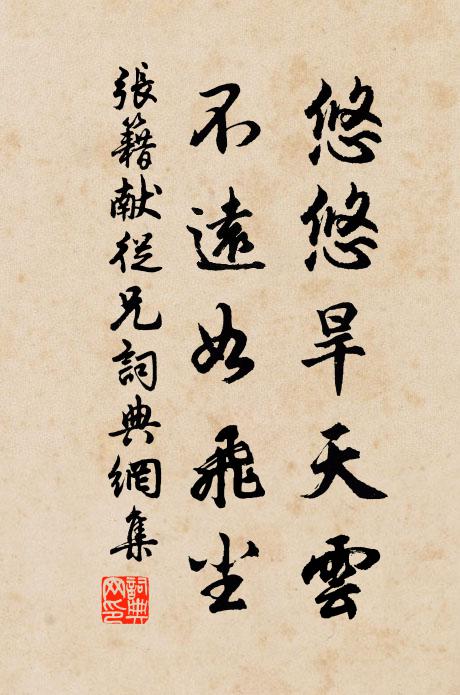 悠悠旱天雲
不遠如飛塵
張籍献從兄詞典網集
詞典网印